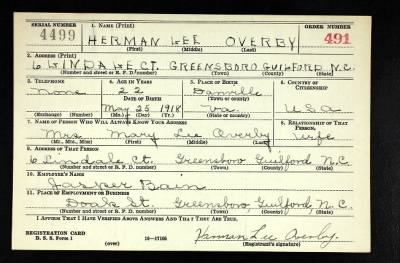 SERIAL NUMBER 1. NAME (Print) ORDER NUMBER
4499 HERMAN LEE OVERBY 491
(First) (Middle) (Last)
2. ADDRESS (Print)
6 LINDALE CT. GREENSBORO GUILFORD N.C.
(Number and street or R. F. D. number) (Town) (County) (State)
3. TELEPHONE 4. AGE IN YEARS 5. PLACE OF BIRTH 6. COUNTRY OF CITIZENSHIP
None 22 Danville
DATE OF BIRTH (Town or county)
May 25 1918 Va. U S A
(Exchange) (Number) (Mo.) (Day) (Yr.) (State or country)
7. NAME OF PERSON WHO WILL ALWAYS KNOW YOUR ADDRESS 8. RELATIONSHIP OF THAT PERSON
Mrs. Mary Lee Overby Wife
(Mr., Mrs., Miss) (First) (Middle) (Last)
9. ADDRESS OF THAT PERSON
6 Lindale Ct. Greensboro Guilford N.C.
(Number and street or R. F. D. number) (Town) (County) (State)
10. EMPLOYER'S NAME
Jasper Bain
11. PLACE OF EMPLOYMENT OR BUSINESS
Doak St. Greensboro, Guilford, N.C.
(Number and street or R. F. D. number) (Town) (County) (State)
I AFFIRM THAT I HAVE VERIFIED ABOVE ANSWERS AND THAT THEY ARE TRUE.
REGISTRATION CARD
D. S. S. Form 1 (over) 16—17105 Herman Lee Overby
(Registrant's signature)